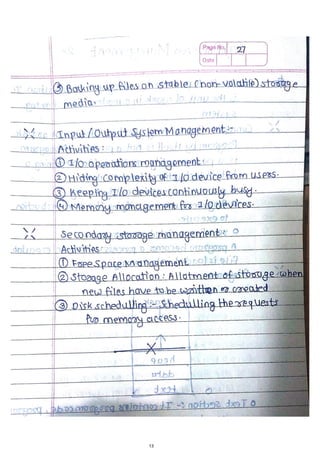 Page No. 27
Date
⑤ Backing up files on stable (non-volatile) storage
media.
Input / Output System Management :-
Activities :
① I/O operations management
② Hiding complexity of I/O device from users.
③ Keeping I/O devices continuously busy.
④ Memory management for I/O devices.
Secondary storage management :
Activities :
① Free Space Management
② Storage Allocation : Allotment of storage when
new files have to be written or created
③ Disk schedulling :- Shedulling the requests
for memory access.
X
13